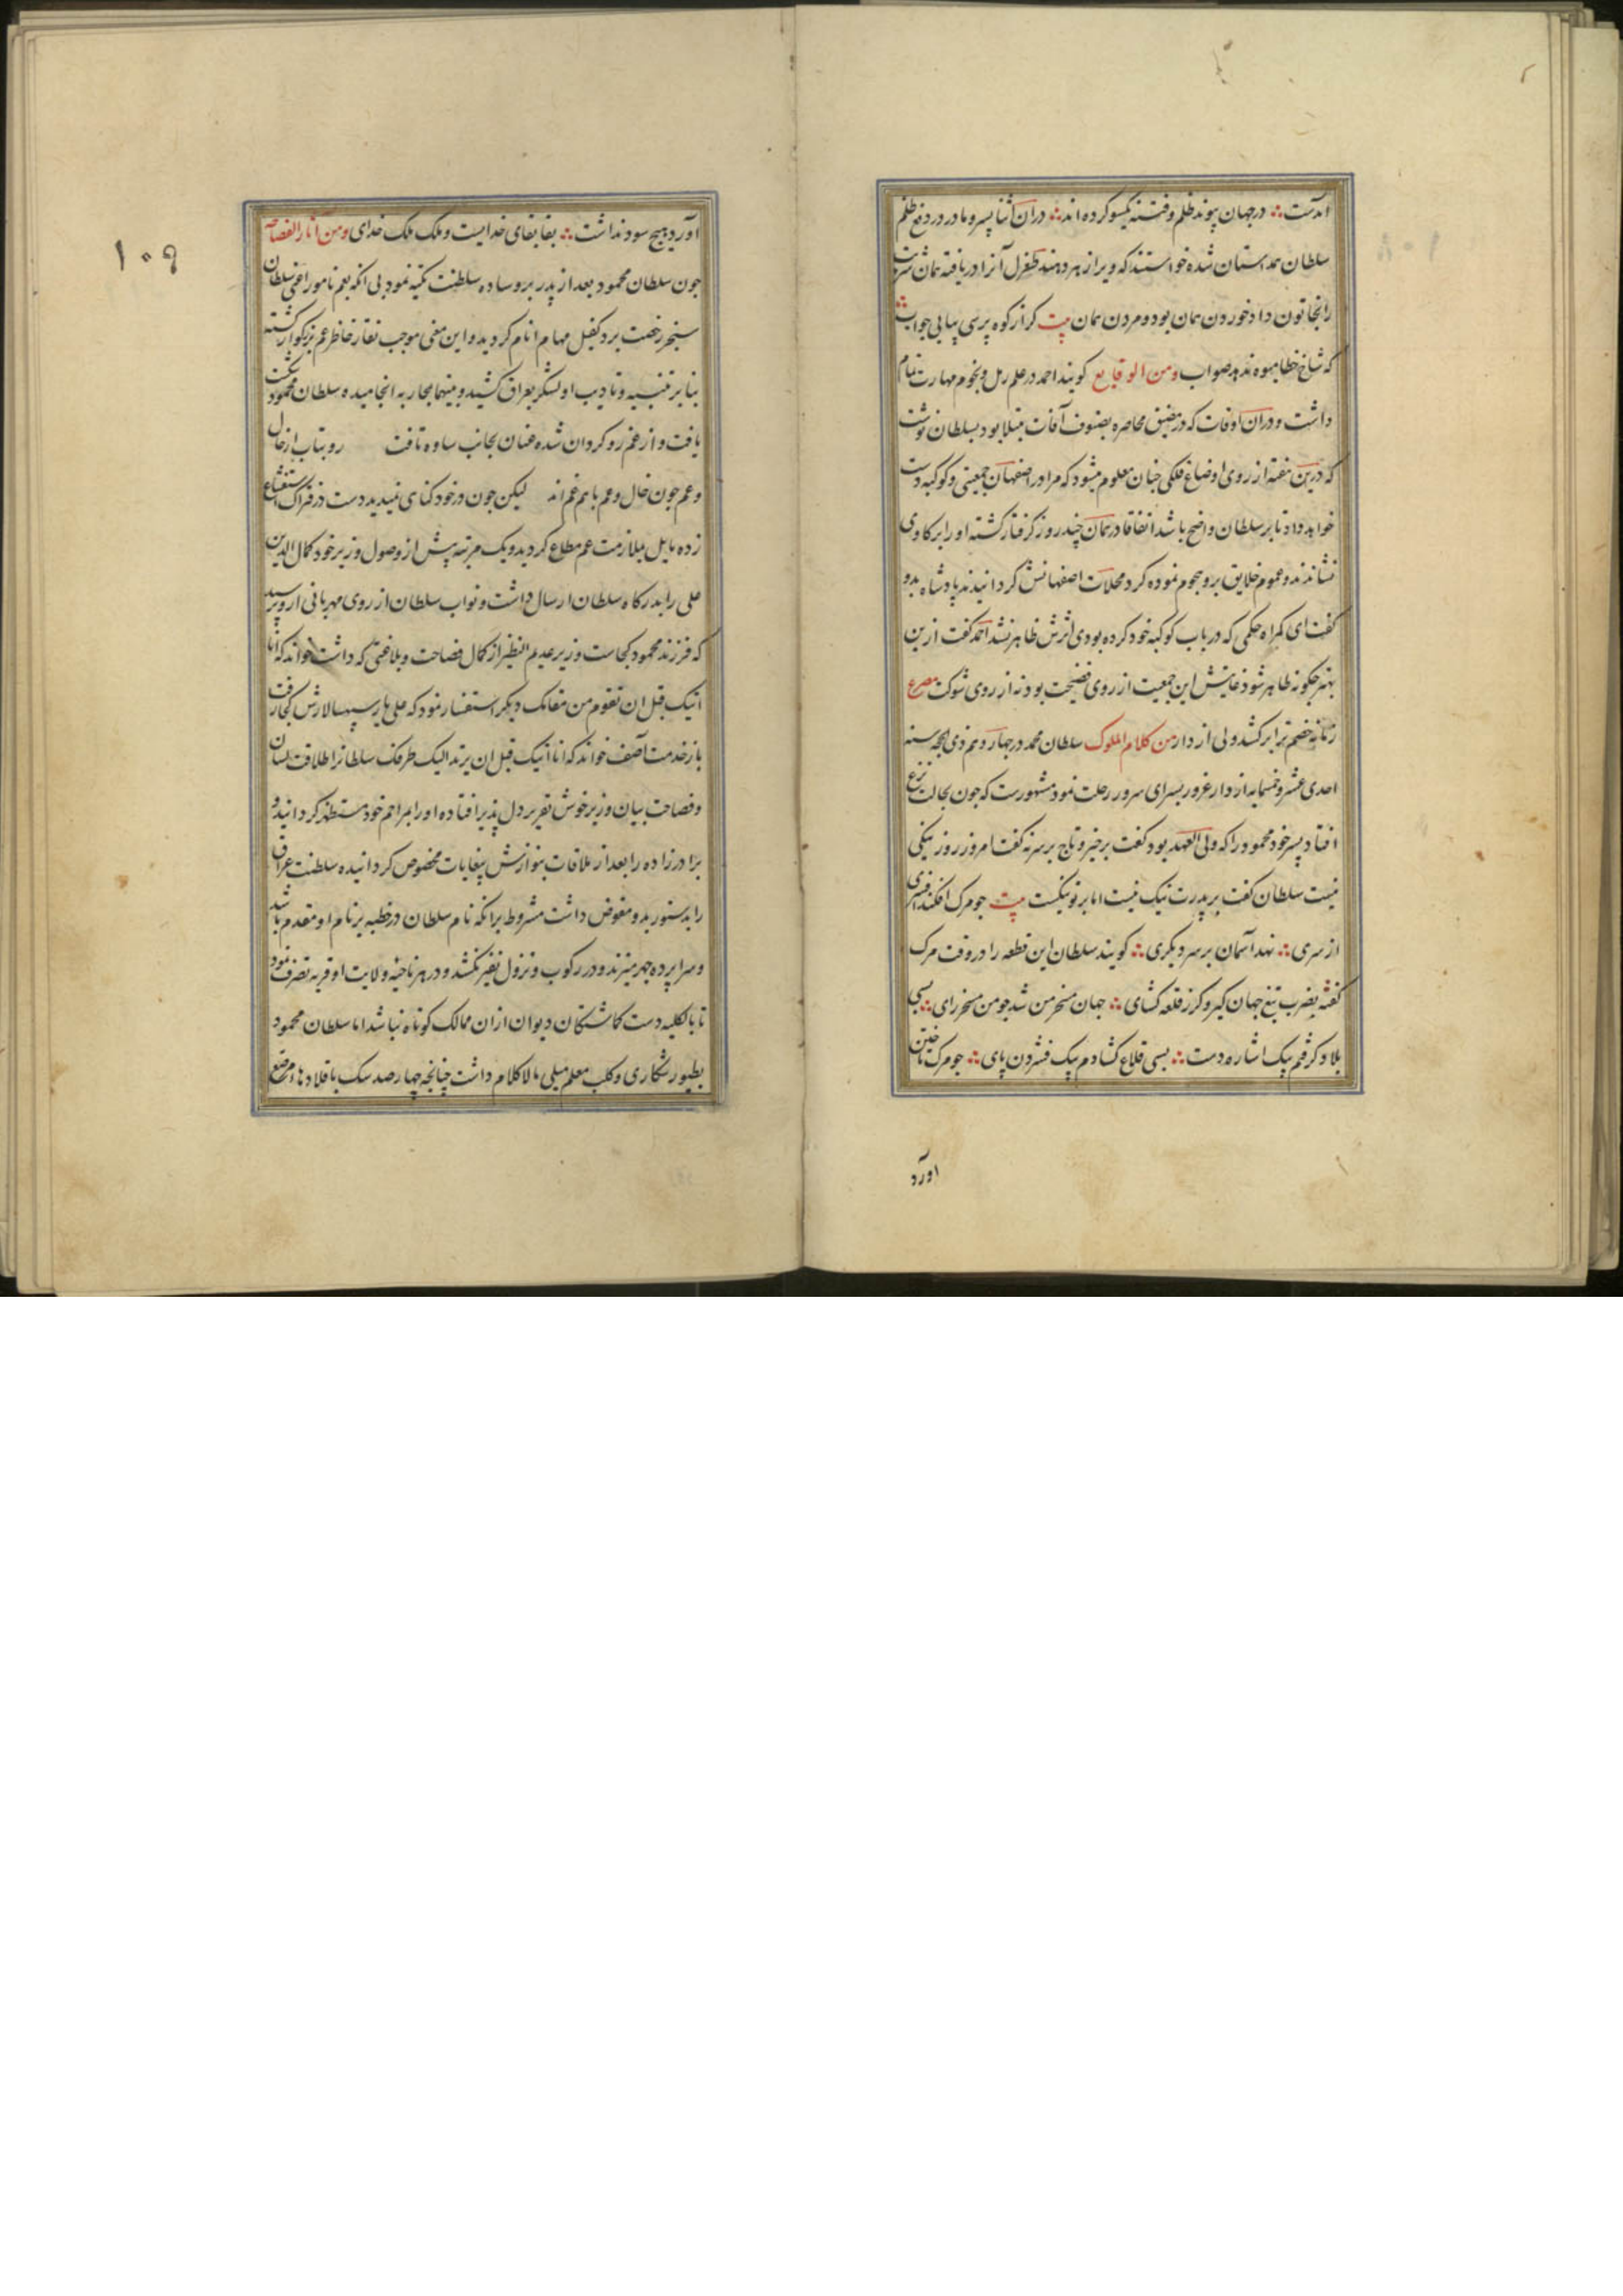 اند است ∴ در جهان پیوند ظلم و فتنه یکسو کرده اند ∴ در ان اثنا پسر و مادر در دفع ظلم
سلطان همداستان شده خواستند که ویرا زهر دهند طغرل آنرا دریافته همان شربت
را بخاتون داد خوردن همان بود و مردن همان بیت کر از کوه پرسی بیابی جواب ∴
که شاخ خطا میوه ندهد صواب ومن الوقایع کویند احمد در علم رمل و نجوم مهارت تمام
داشت و دران اوقات که در مضیق محاصره بصنوف آفات مبتلا بود بسلطان نوشت
که درین هفته از روی اوضاع فلکی جنان معلوم میشود که مرا در اصفهان جمعیتی و کوکبه دست
خواهد داد تا بر سلطان واضح باشد اتفاقا در همان چند روز کرفتار کشته او را بر کاوی
نشاندند و عموم خلایق برو هجوم نموده کرد محلات اصفهانش کردانیدند پادشاه بدو
کفت ای کمراه حکمی که در باب کوکبه خود کرده بودی اثرش ظاهر نشد احمد کفت ازین
بهتر جکونه ظاهر شود غایتش این جمعیت از روی فضیحت بود نه از روی شوکت مصرع
زمانه خصم ترا برکشد ولی از دار من کلام الملوک سلطان محمد در چهاردهم ذی الحجه سنه
احدی عشر و خمسمایه از دار غرور بسرای سرور رحلت نمود مشهورست که جون بحالت نزع
افتاد پسر خود محمود را که ولی العهد بود کفت برخیز و تاج بر سر نه کفت امروز روز نیکی
نیست سلطان کفت بر پدرت نیک نیست اما بر تو نیکست بیت جو مرک افکند افسری
از سری ∴ نهد آسمان بر سر دیکری ∴ کویند سلطان این قطعه را در وقت مرک
کفته بضرب تیغ جهان کیر و کرز قلعه کشای ∴ جهان مسخر من شد جو من مسخر رای ∴ بسی
بلاد کرفتم بیک اشاره دست ∴ بسی قلاع کشادم بیک فشردن پای ∴ جو مرک تاختن
اورد
۱۰۹
آورد هیچ سود نداشت ∴ بقا بقای خدایست و ملک ملک خدای ومن آثار الفصاحه
جون سلطان محمود بعد از پدر بر وساده سلطنت تکیه نمود بی انکه بعم نامور اعنی سلطان
سنجر رخصت برد کفیل مهام انام کردید و این معنی موجب نقار خاطر عم بزرکوار کشته
بنابر تنبیه و تادیب او لشکر بعراق کشید و بینهما بمحاربه انجامیده سلطان محمود شکست
یافت و از عم رو کردان شده عنان بجانب ساوه تافت رو بتاب از خال
و عم جون خال و عم با هم غم اند لیکن جون در خود کنای نمیدید دست در فتراک استشفاع
زده مایل بملازمت عم مطاع کردید و یک مرتبه پیش از وصول وزیر خود کمال الدین
علی را بدرکاه سلطان ارسال داشت و نواب سلطان از روی مهربانی از و پرسید
که فرزند محمود کجاست وزیر عدیم النظیر از کمال فصاحت و بلاغتی که داشت خواند که انا
اتیک قبل ان تقوم من مقامک دیکر استفسار نمود که علی بار سپهسالارش کجا رفت
باز خدمت آصف خواند که انا اتیک قبل ان یرتد الیک طرفک سلطانرا طلاقت لسان
و فصاحت بیان وزیر خوش تقریر دل پذیر افتاده او را بمراحم خود مستظهر کردانید و
برادرزاده را بعد از ملاقات بنوازش بیغایات مخصوص کردانیده سلطنت عراق
را بدستور بدو مفوض داشت مشروط برانکه نام سلطان در خطبه بر نام او مقدم باشد
و سراپرده جهر میزند و در رکوب و نزول نفیر نکشد و در هر ناحیه ولایت او قریه تصرف نمود
تا بالکلیه دست کماشتکان دیوان ازان ممالک کوتاه نباشد اما سلطان محمود
بطیور شکاری و کلب معلم میلی مالاکلام داشت چنانچه چهارصد سک با قلادهاء مرصع